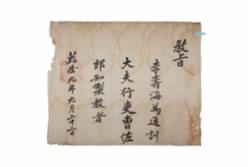 敎旨
李壽海爲通訓
大夫行吏曹佐
郎知製敎者
乾隆九年九月二十二日